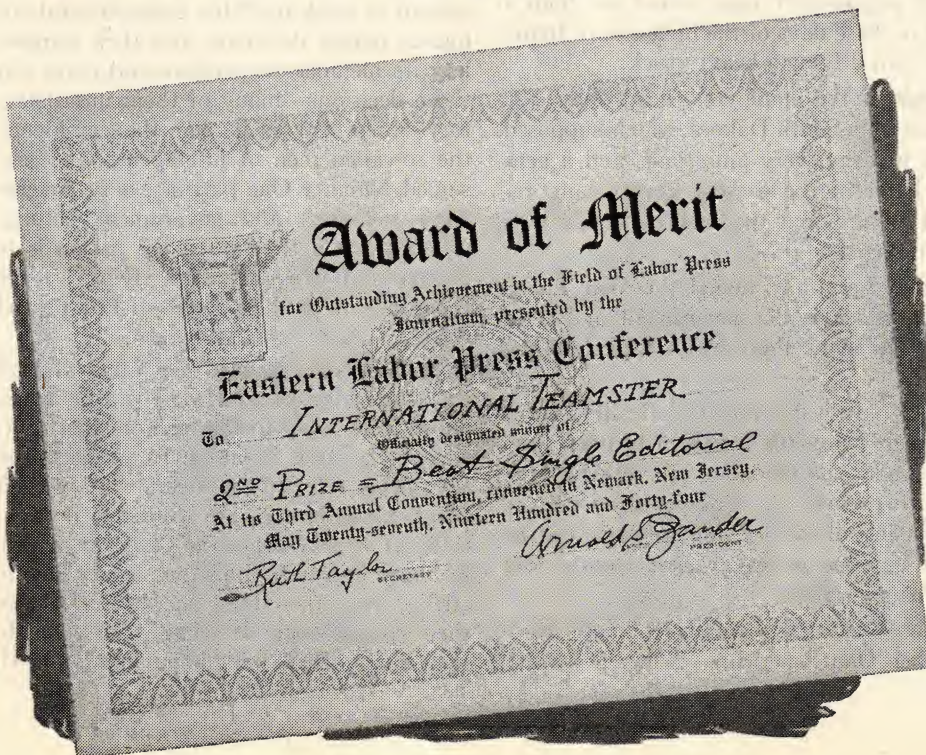 Award of Merit
for Outstanding Achievement in the Field of Labor Press
Journalism, presented by the
Eastern Labor Press Conference
To INTERNATIONAL TEAMSTER
Officially designated winner of
2ND PRIZE = Best Single Editorial
At its Third Annual Convention, convened in Newark, New Jersey,
May Twenty-seventh, Nineteen Hundred and Forty-four
Ruth Taylor Arnold S. Zander
SECRETARY PRESIDENT